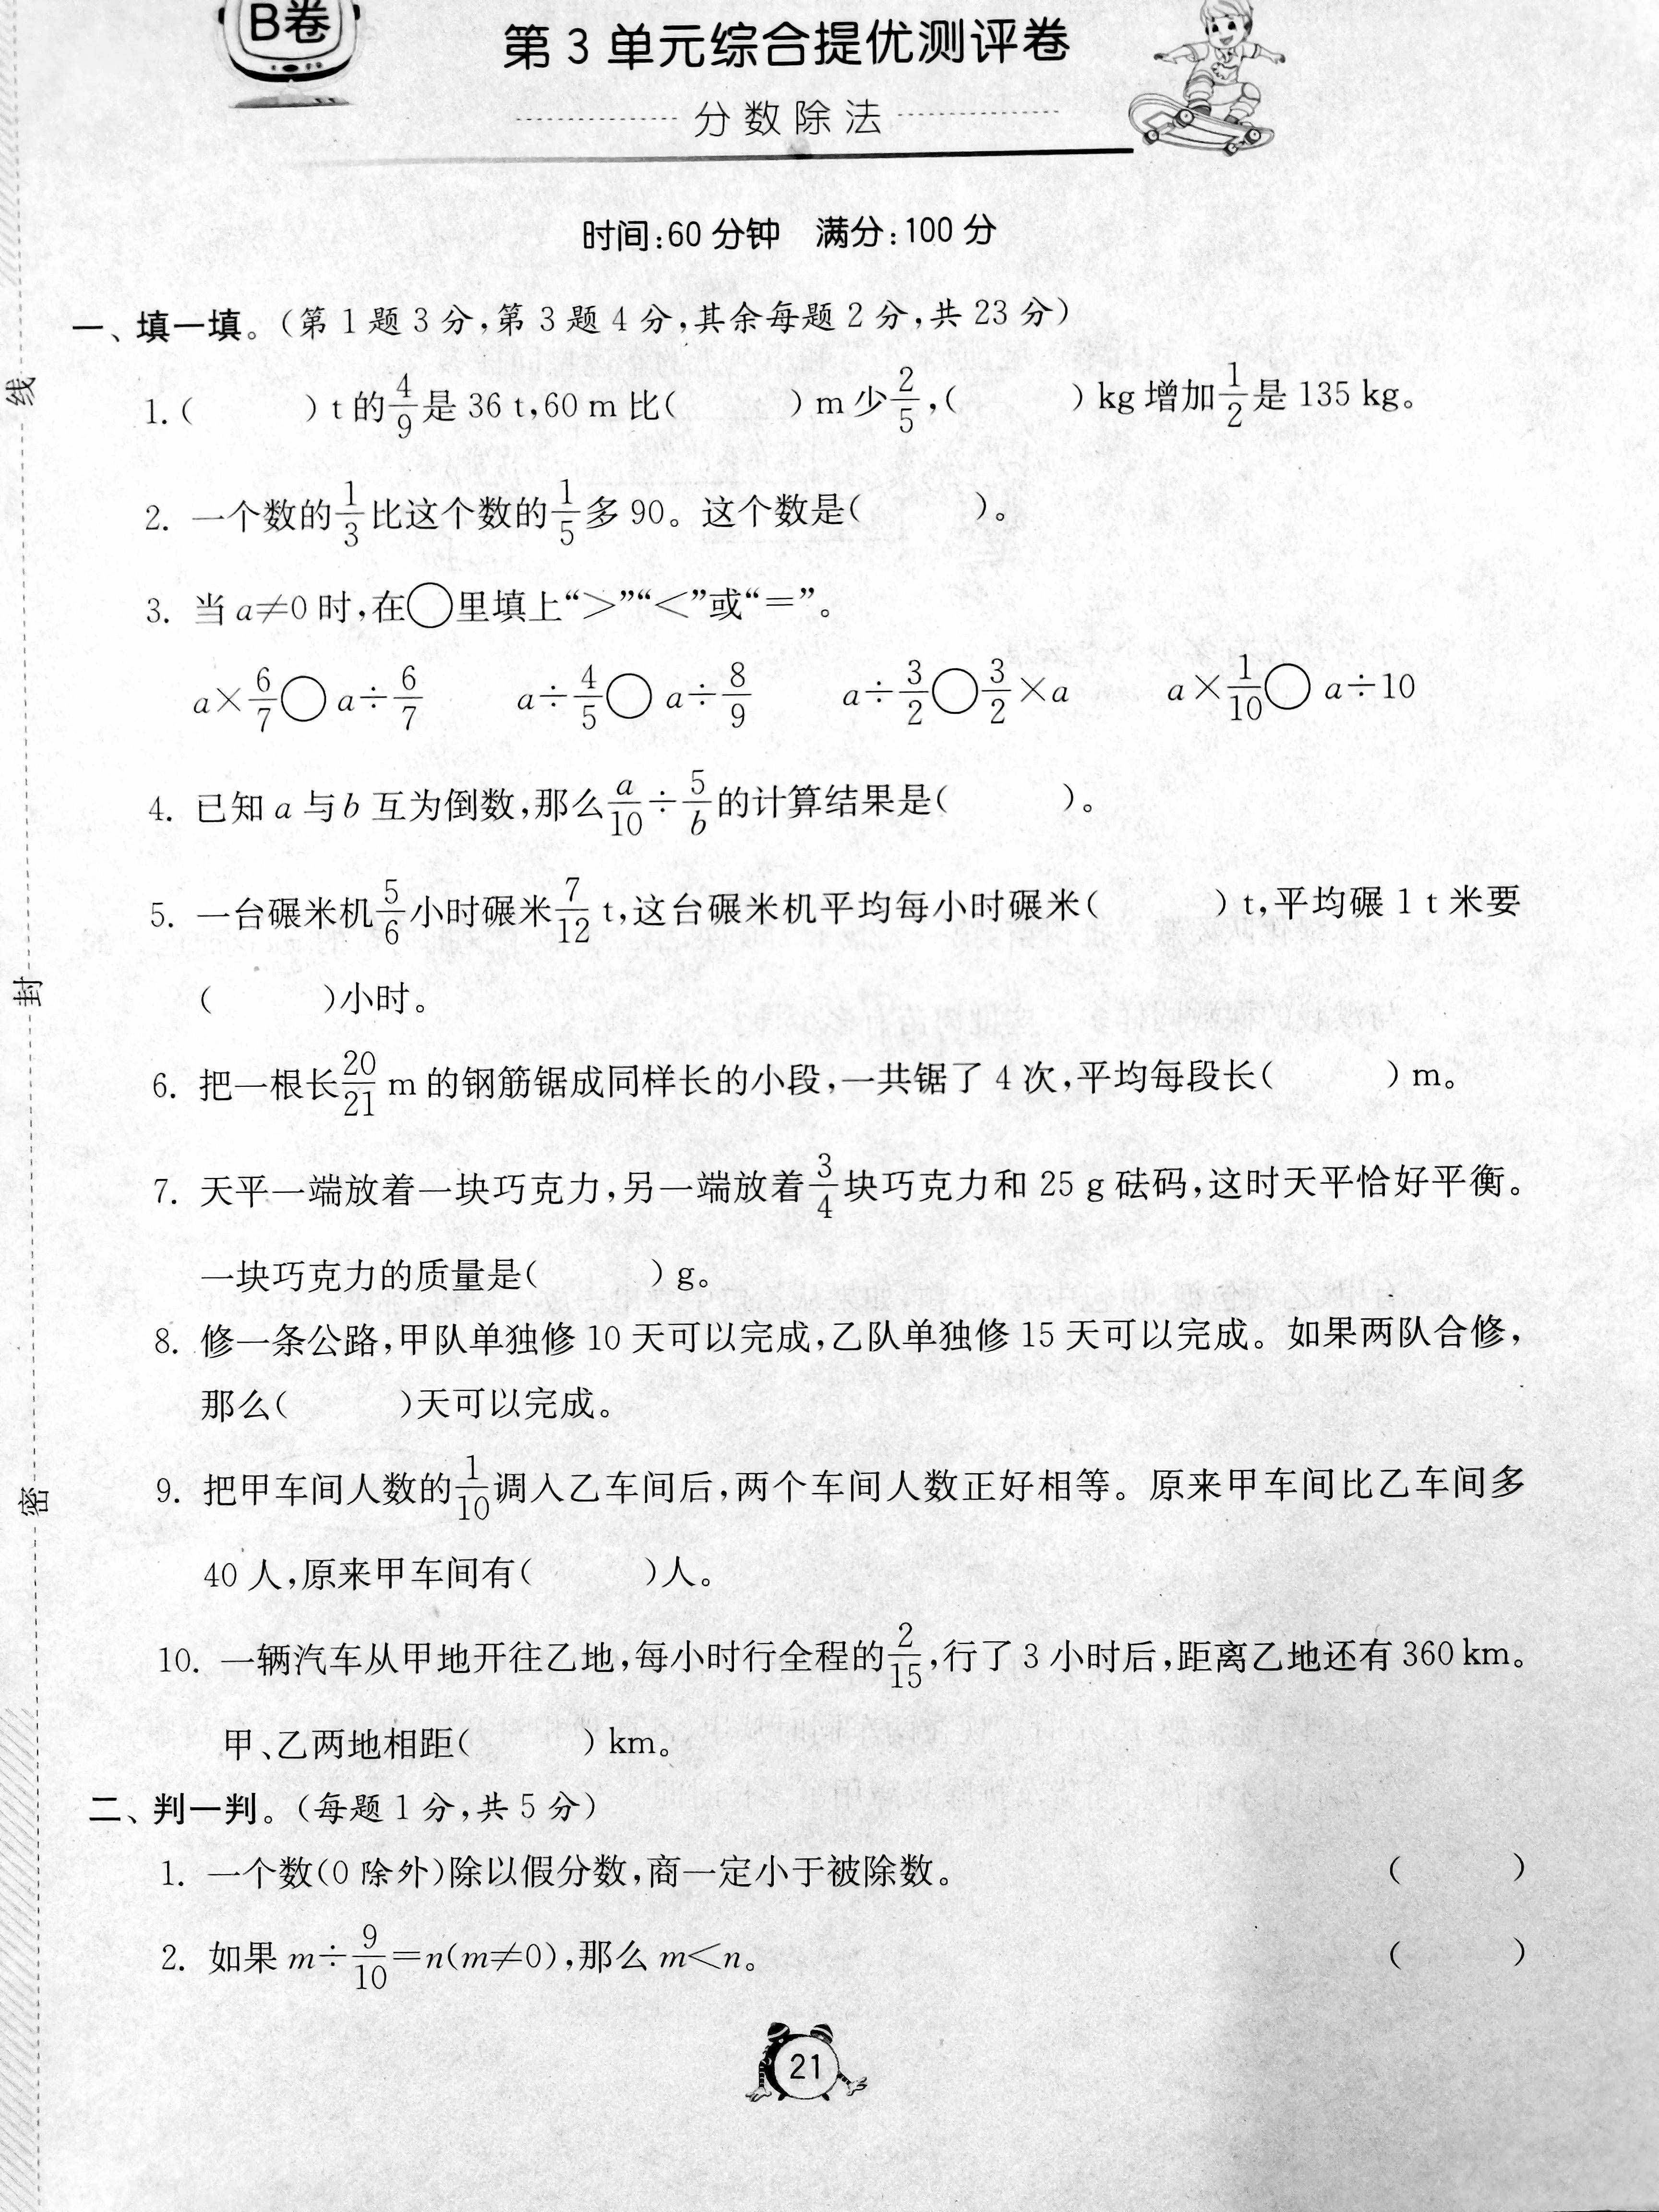 B卷
第 3 单元综合提优测评卷
分数除法
时间:60 分钟 满分:100 分
一、填一填。(第 1 题 3 分,第 3 题 4 分,其余每题 2 分,共 23 分)
1.( ) t 的4/9是 36 t,60 m 比( ) m 少2/5,( ) kg 增加1/2是 135 kg。
2. 一个数的1/3比这个数的1/5多 90。这个数是( )。
3. 当 a≠0 时,在○里填上“>”“<”或“=”。
a×6/7○a÷6/7 a÷4/5○a÷8/9 a÷3/2○3/2×a a×1/10○a÷10
4. 已知 a 与 b 互为倒数,那么a/10÷5/b的计算结果是( )。
5. 一台碾米机5/6小时碾米7/12 t,这台碾米机平均每小时碾米( ) t,平均碾 1 t 米要
( )小时。
6. 把一根长20/21 m 的钢筋锯成同样长的小段,一共锯了 4 次,平均每段长( ) m。
7. 天平一端放着一块巧克力,另一端放着3/4块巧克力和 25 g 砝码,这时天平恰好平衡。
一块巧克力的质量是( ) g。
8. 修一条公路,甲队单独修 10 天可以完成,乙队单独修 15 天可以完成。如果两队合修,
那么( )天可以完成。
9. 把甲车间人数的1/10调入乙车间后,两个车间人数正好相等。原来甲车间比乙车间多
40 人,原来甲车间有( )人。
10. 一辆汽车从甲地开往乙地,每小时行全程的2/15,行了 3 小时后,距离乙地还有 360 km。
甲、乙两地相距( ) km。
二、判一判。(每题 1 分,共 5 分)
1. 一个数(0 除外)除以假分数,商一定小于被除数。 ( )
2. 如果 m÷9/10=n(m≠0),那么 m<n。 ( )
21
线
封
密